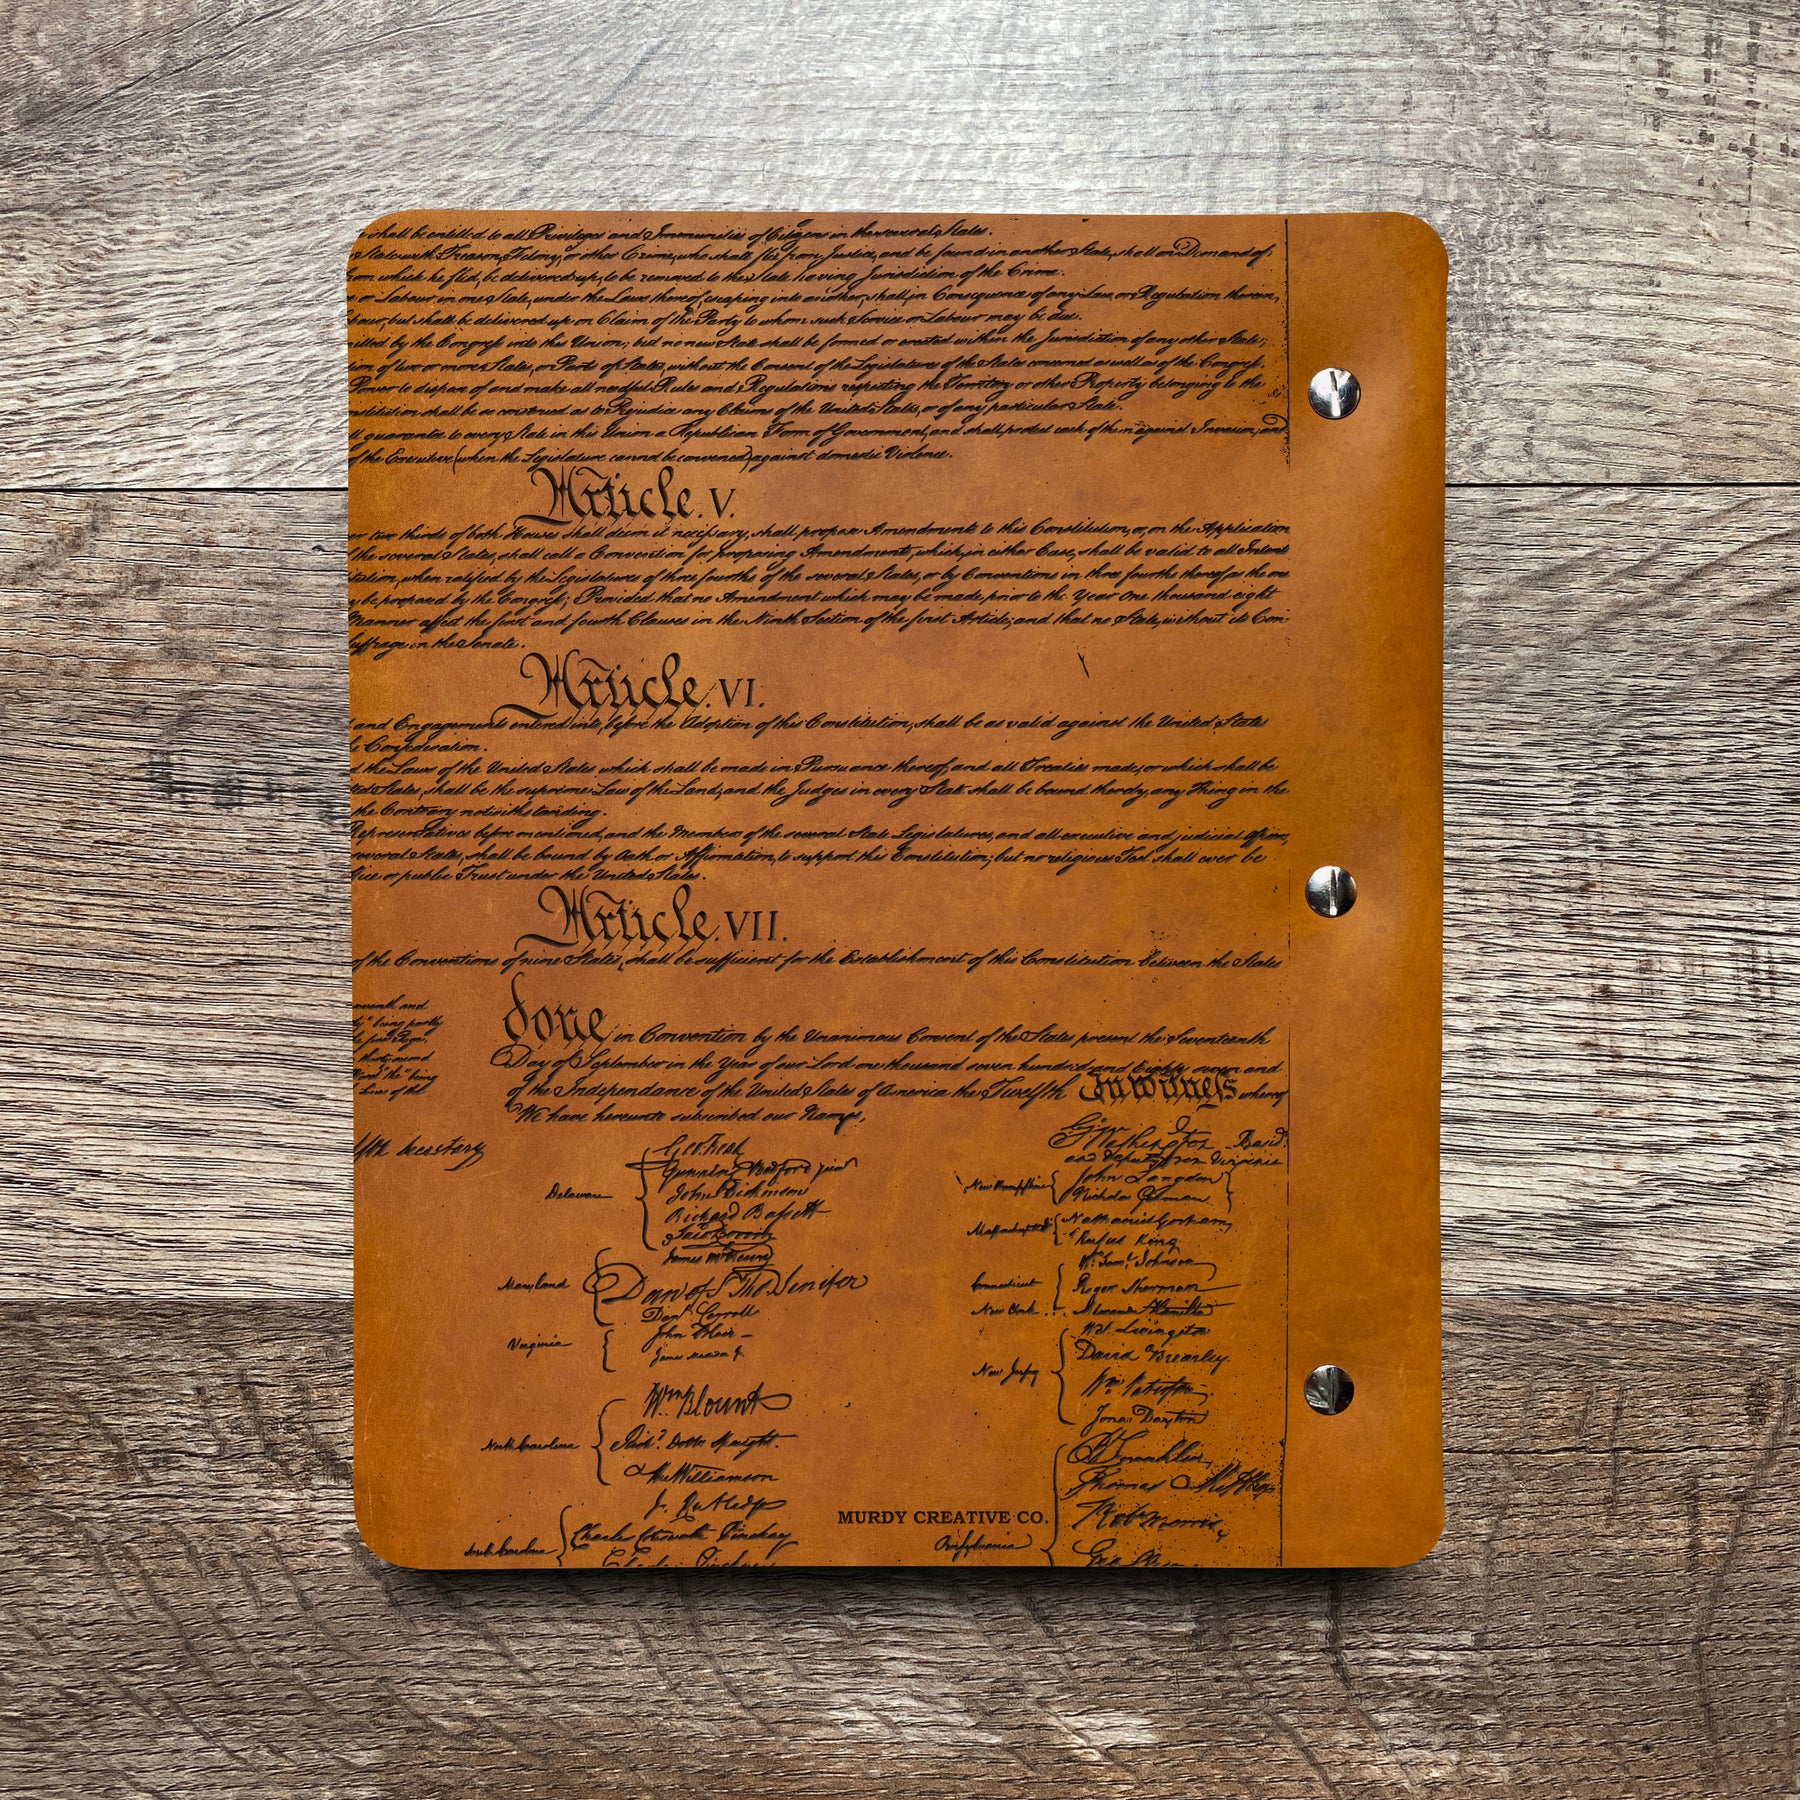 shall be entitled to all Privileges and Immunities of Citizens in the several States.
State with Treason, Felony, or other Crime, who shall flee from Justice, and be found in another State, shall on Demand of
from which he fled, be delivered up, to be removed to the State having Jurisdiction of the Crime.
or Labour in one State, under the Laws thereof, escaping into another, shall, in Consequence of any Law or Regulation therein,
but shall be delivered up on Claim of the Party to whom such Service or Labour may be due.
by the Congress into this Union; but no new State shall be formed or erected within the Jurisdiction of any other State;
of two or more States, or Parts of States, without the Consent of the Legislatures of the States concerned as well as of the Congress.
Power to dispose of and make all needful Rules and Regulations respecting the Territory or other Property belonging to the
shall be so construed as to Prejudice any Claims of the United States, or of any particular State.
guarantee to every State in this Union a Republican Form of Government, and shall protect each of them against Invasion; and
of the Executive (when the Legislature cannot be convened) against domestic Violence.
Article. V.
two thirds of both Houses shall deem it necessary, shall propose Amendments to this Constitution, or, on the Application
the several States, shall call a Convention for proposing Amendments, which, in either Case, shall be valid to all Intents
when ratified by the Legislatures of three fourths of the several States, or by Conventions in three fourths thereof, as the one
be proposed by the Congress; Provided that no Amendment which may be made prior to the Year One thousand eight
Manner affect the first and fourth Clauses in the Ninth Section of the first Article; and that no State, without its Con-
in the Senate.
Article. VI.
and Engagements entered into, before the Adoption of this Constitution, shall be as valid against the United States
Confederation.
the Laws of the United States which shall be made in Pursuance thereof; and all Treaties made, or which shall be
States, shall be the supreme Law of the Land; and the Judges in every State shall be bound thereby, any Thing in the
the Contrary notwithstanding.
Representatives before mentioned, and the Members of the several State Legislatures, and all executive and judicial Officers,
several States, shall be bound by Oath or Affirmation, to support this Constitution; but no religious Test shall ever be
or public Trust under the United States.
Article. VII.
of the Conventions of nine States, shall be sufficient for the Establishment of this Constitution between the States
done in Convention by the Unanimous Consent of the States present the Seventeenth
Day of September in the Year of our Lord one thousand seven hundred and Eighty seven and
of the Independance of the United States of America the Twelfth In Witness whereof
We have hereunto subscribed our Names,
and
being partly
"the" being
Secretary
Delaware
Geo: Read
Gunning Bedford jun
John Dickinson
Richard Bassett
Jaco: Broom
Maryland
James McHenry
Dan of St Tho Jenifer
Danl Carroll
Virginia
John Blair —
James Madison Jr.
North Carolina
Wm Blount
Richd Dobbs Spaight.
Hu Williamson
South Carolina
J. Rutledge
Charles Cotesworth Pinckney
Charles Pinckney
Go Washington Presidt
and deputy from Virginia
New Hampshire
John Langdon
Nicholas Gilman
Massachusetts
Nathaniel Gorham
Rufus King
Connecticut
Wm Saml Johnson
Roger Sherman
New York . . .
Alexander Hamilton
New Jersey
Wil: Livingston
David Brearley.
Wm Paterson.
Jona: Dayton
Pensylvania
B Franklin
Thomas Mifflin
Robt Morris
MURDY CREATIVE CO.